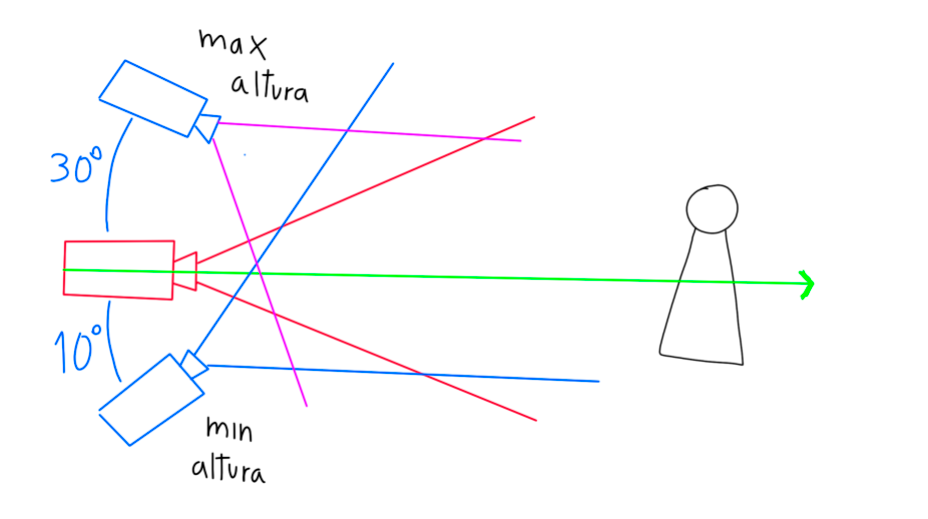 max
altura
30°
10°
min
altura